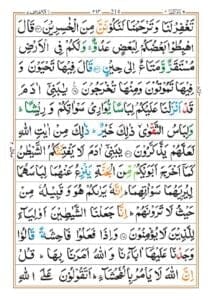 تَغْفِرْلَنَا وَتَرْحَمْنَا لَنَكُوْنَنَّ مِنَ الْخٰسِرِيْنَ ۝ قَالَ
اهْبِطُوْا بَعْضُكُمْ لِبَعْضٍ عَدُوٌّ ۚ وَلَكُمْ فِى الْاَرْضِ
مُسْتَقَرٌّ وَّمَتَاعٌ اِلٰى حِيْنٍ ۝ قَالَ فِيْهَا تَحْيَوْنَ وَ
فِيْهَا تَمُوْتُوْنَ وَمِنْهَا تُخْرَجُوْنَ ۝ يٰبَنِىْٓ اٰدَمَ
قَدْ اَنْزَلْنَا عَلَيْكُمْ لِبَاسًا يُّوَارِىْ سَوْاٰتِكُمْ وَ رِيْشًا ؕ
وَلِبَاسُ التَّقْوٰى ذٰلِكَ خَيْرٌ ؕ ذٰلِكَ مِنْ اٰيٰتِ اللّٰهِ
لَعَلَّهُمْ يَذَّكَّرُوْنَ ۝ يٰبَنِىْٓ اٰدَمَ لَا يَفْتِنَنَّكُمُ الشَّيْطٰنُ
كَمَآ اَخْرَجَ اَبَوَيْكُمْ مِّنَ الْجَنَّةِ يَنْزِعُ عَنْهُمَا لِبَاسَهُمَا
لِيُرِيَهُمَا سَوْاٰتِهِمَا ؕ اِنَّهٗ يَرٰىكُمْ هُوَ وَ قَبِيْلُهٗ مِنْ
حَيْثُ لَا تَرَوْنَهُمْ ؕ اِنَّا جَعَلْنَا الشَّيٰطِيْنَ اَوْلِيَآءَ
لِلَّذِيْنَ لَا يُؤْمِنُوْنَ ۝ وَاِذَا فَعَلُوْا فَاحِشَةً قَالُوْا
وَجَدْنَا عَلَيْهَآ اٰبَآءَنَا وَ اللّٰهُ اَمَرَنَا بِهَا ؕ قُلْ
اِنَّ اللّٰهَ لَا يَاْمُرُ بِالْفَحْشَآءِ ؕ اَتَقُوْلُوْنَ عَلَى اللّٰهِ